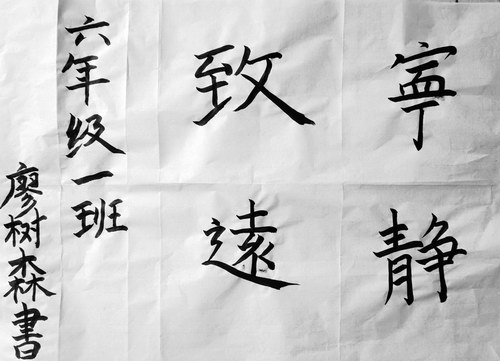 寧靜
致遠
六年级一班
廖树森書